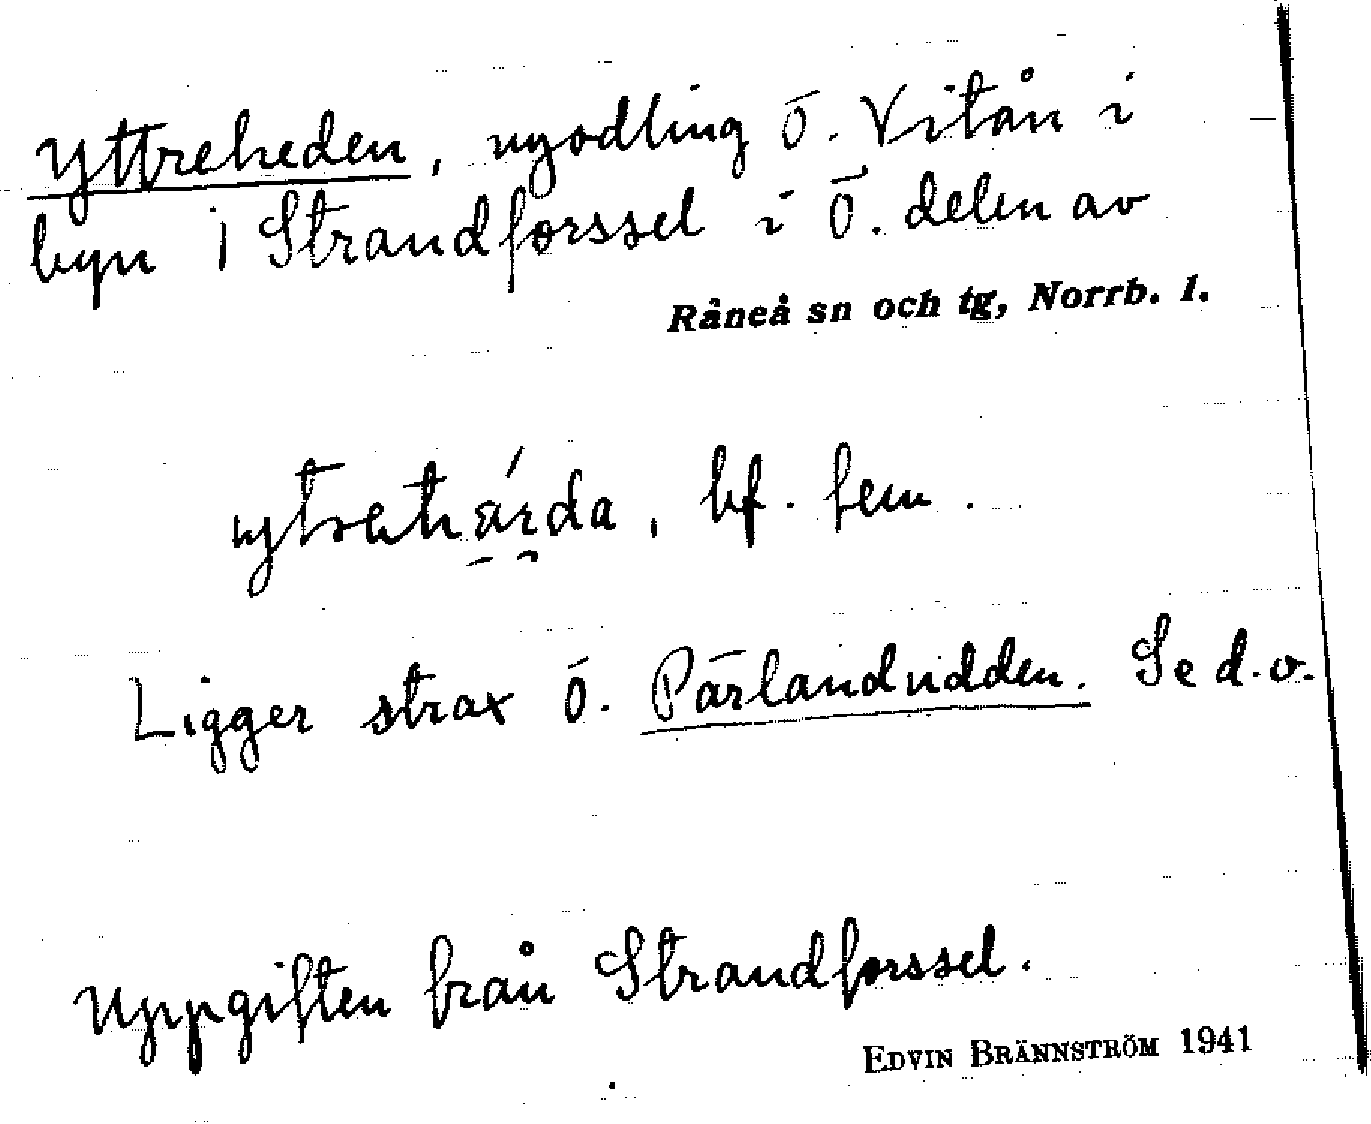 Yttreheden, nyodling ö. Vitån i
byn i Strandforssel i ö. delen av
Råneå sn och tg, Norrb. l.
bf. fem.
Ligger strax ö. Pärlanduddden. Se d.o.
Uppgiften från Strandforssel.
EDVIN BRÄNNSTRÖM 1941